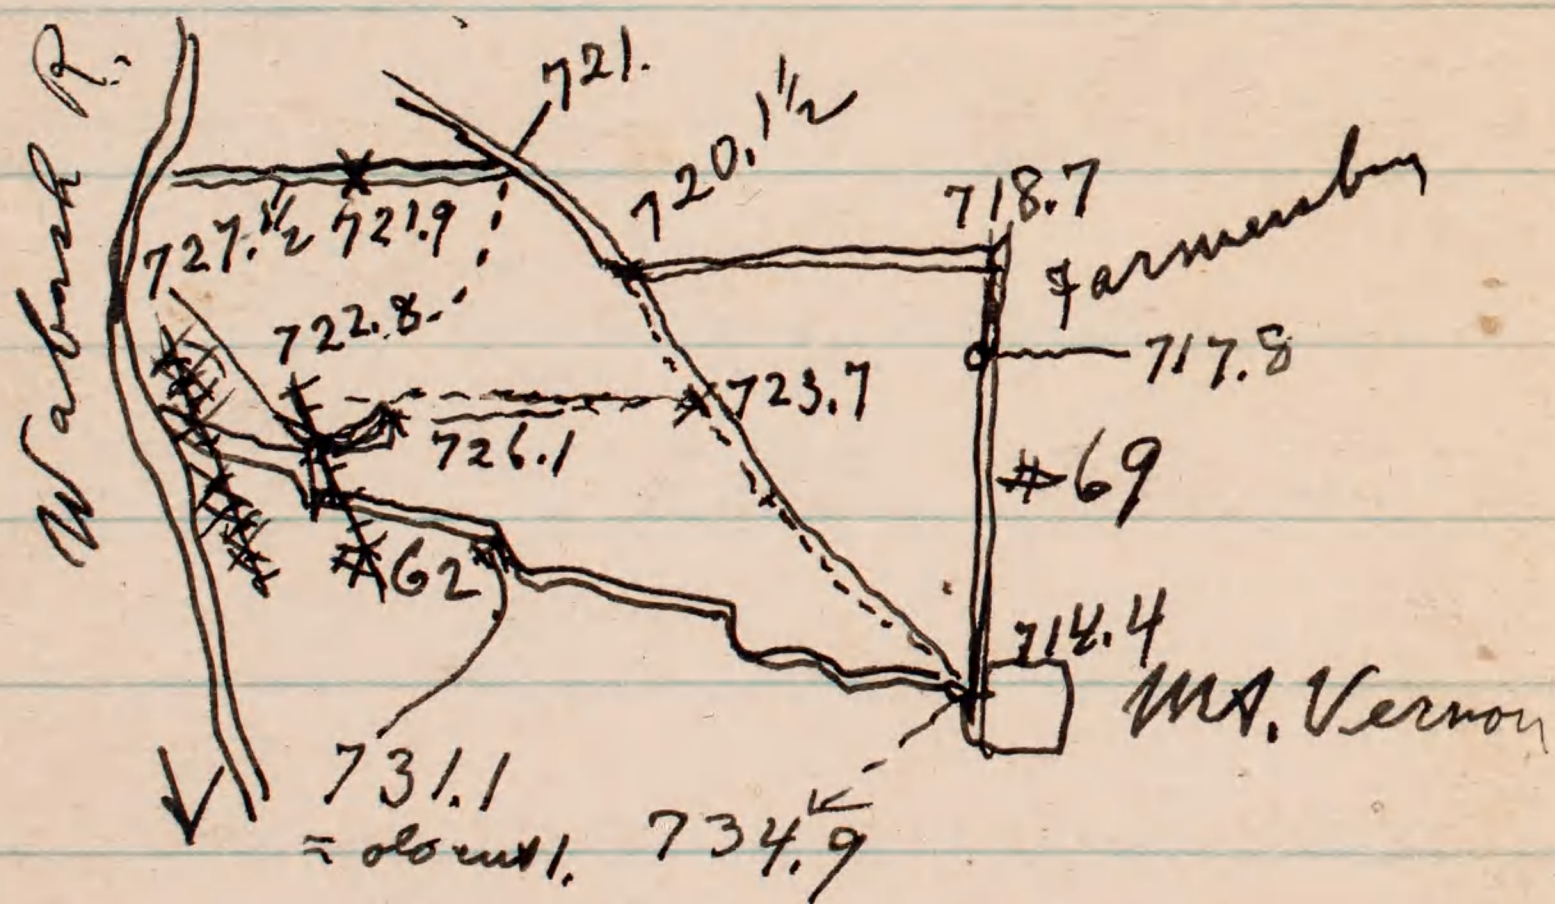 Wabash R.
721.
720.1½
718.7
Farmersburg
727.½ 721.9
722.8
717.8
723.7
726.1
#69
62
714.4
Mt. Vernon
731.1
734.9